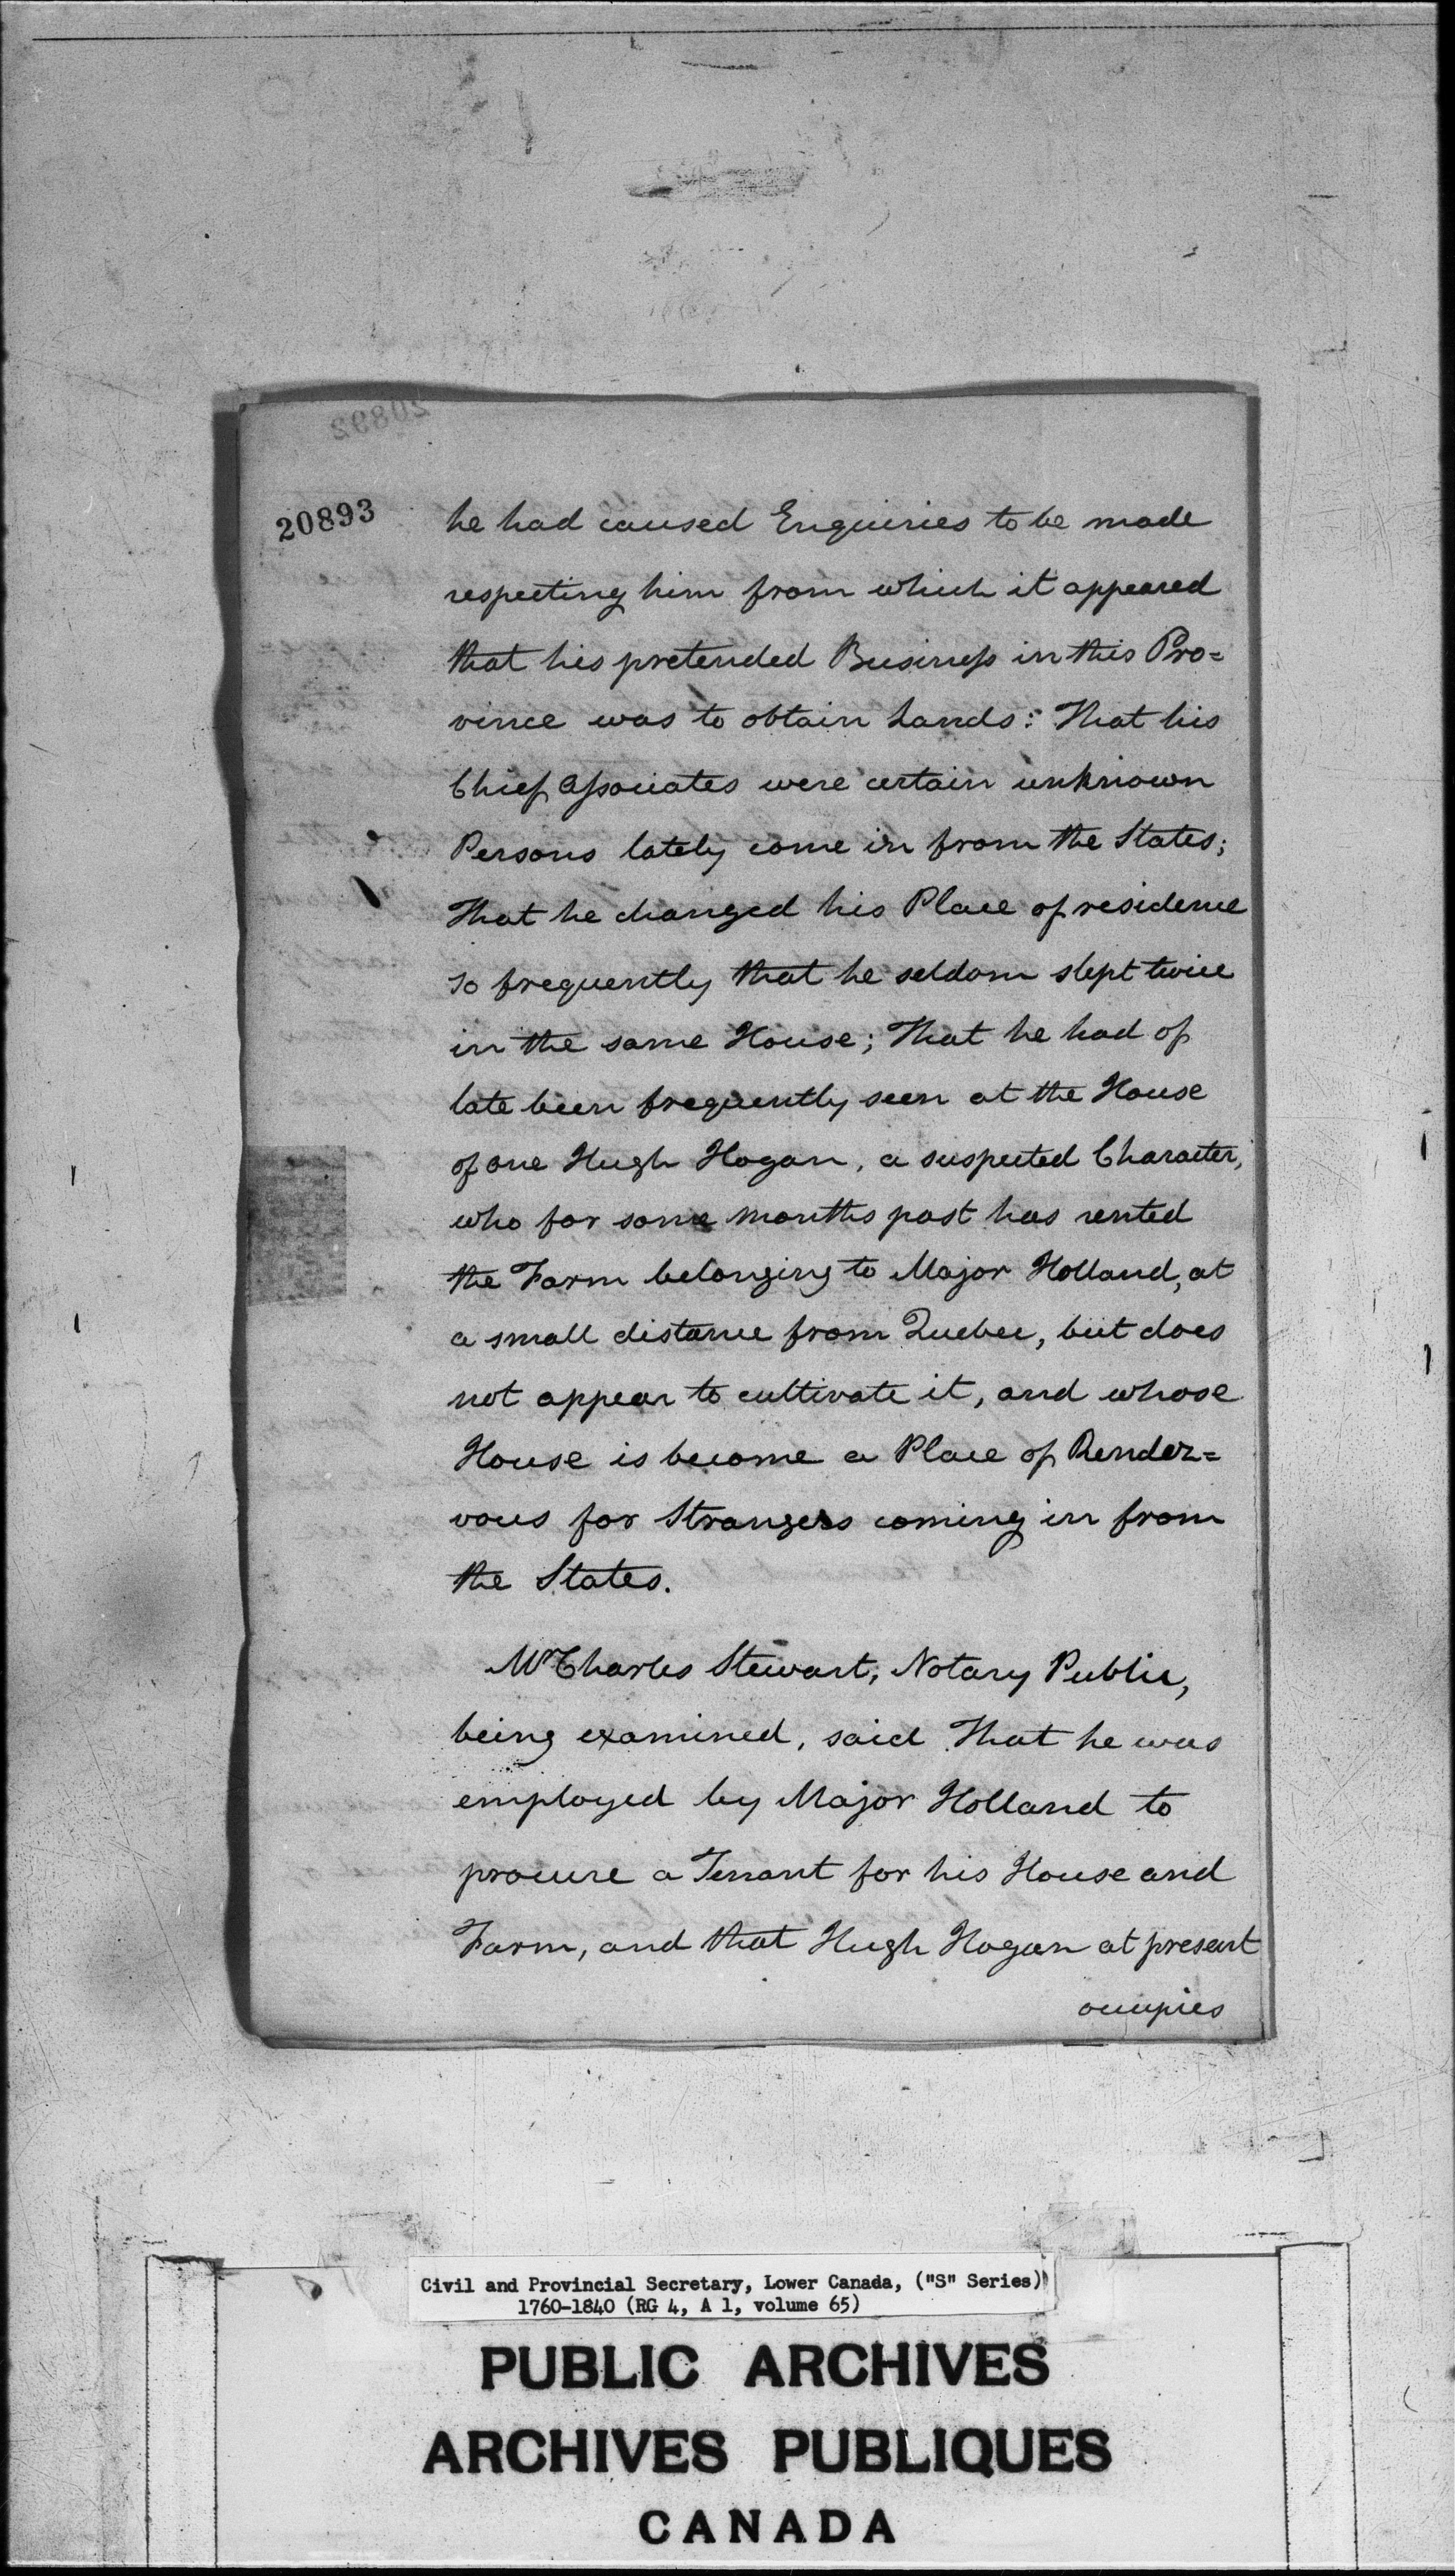 20892
20893
he had caused Enquiries to be made
respecting him from which it appeared
that his pretended Business in this Pro=
vince was to obtain Lands: That his
Chief Associates were certain unknown
Persons lately come in from the States;
That he changed his Place of residence
so frequently that he seldom slept twice
in the same House; That he had of
late been frequently seen at the House
of one Hugh Hogan, a suspected Character,
who for some months past has rented
the Farm belonging to Major Holland, at
a small distance from Quebec, but does
not appear to cultivate it, and whose
House is become a Place of Rendez=
vous for Strangers coming in from
the States.
Mr Charles Stewart, Notary Public,
being examined, said That he was
employed by Major Holland to
procure a Tenant for his House and
Farm, and that Hugh Hogan at present
occupies
Civil and Provincial Secretary, Lower Canada, ("S" Series)
1760-1840 (RG 4, A 1, volume 65)
PUBLIC ARCHIVES
ARCHIVES PUBLIQUES
CANADA